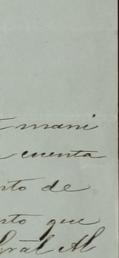 mani
cuenta
to de
to que
Grãl Al